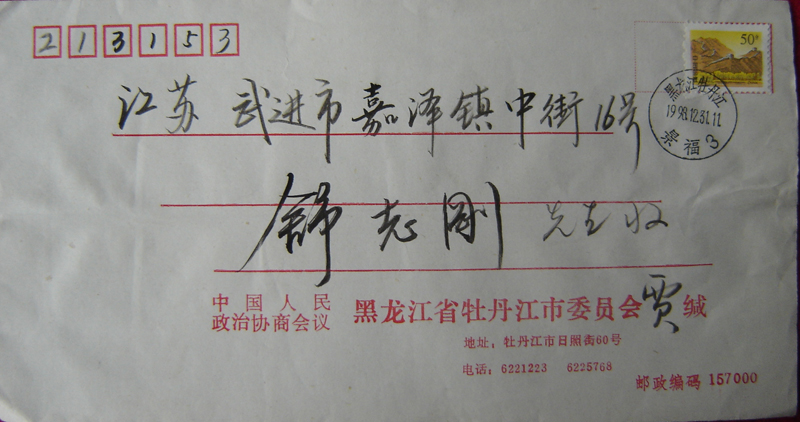 213153
50分
黑龙江牡丹江
1998.12.31.11
景福3
江苏 武进市嘉泽镇中街16号
舒志刚 先生收
中国人民
政治协商会议 黑龙江省牡丹江市委员会 贾 缄
地址：牡丹江市日照街60号
电话：6221223 6225768
邮政编码 157000